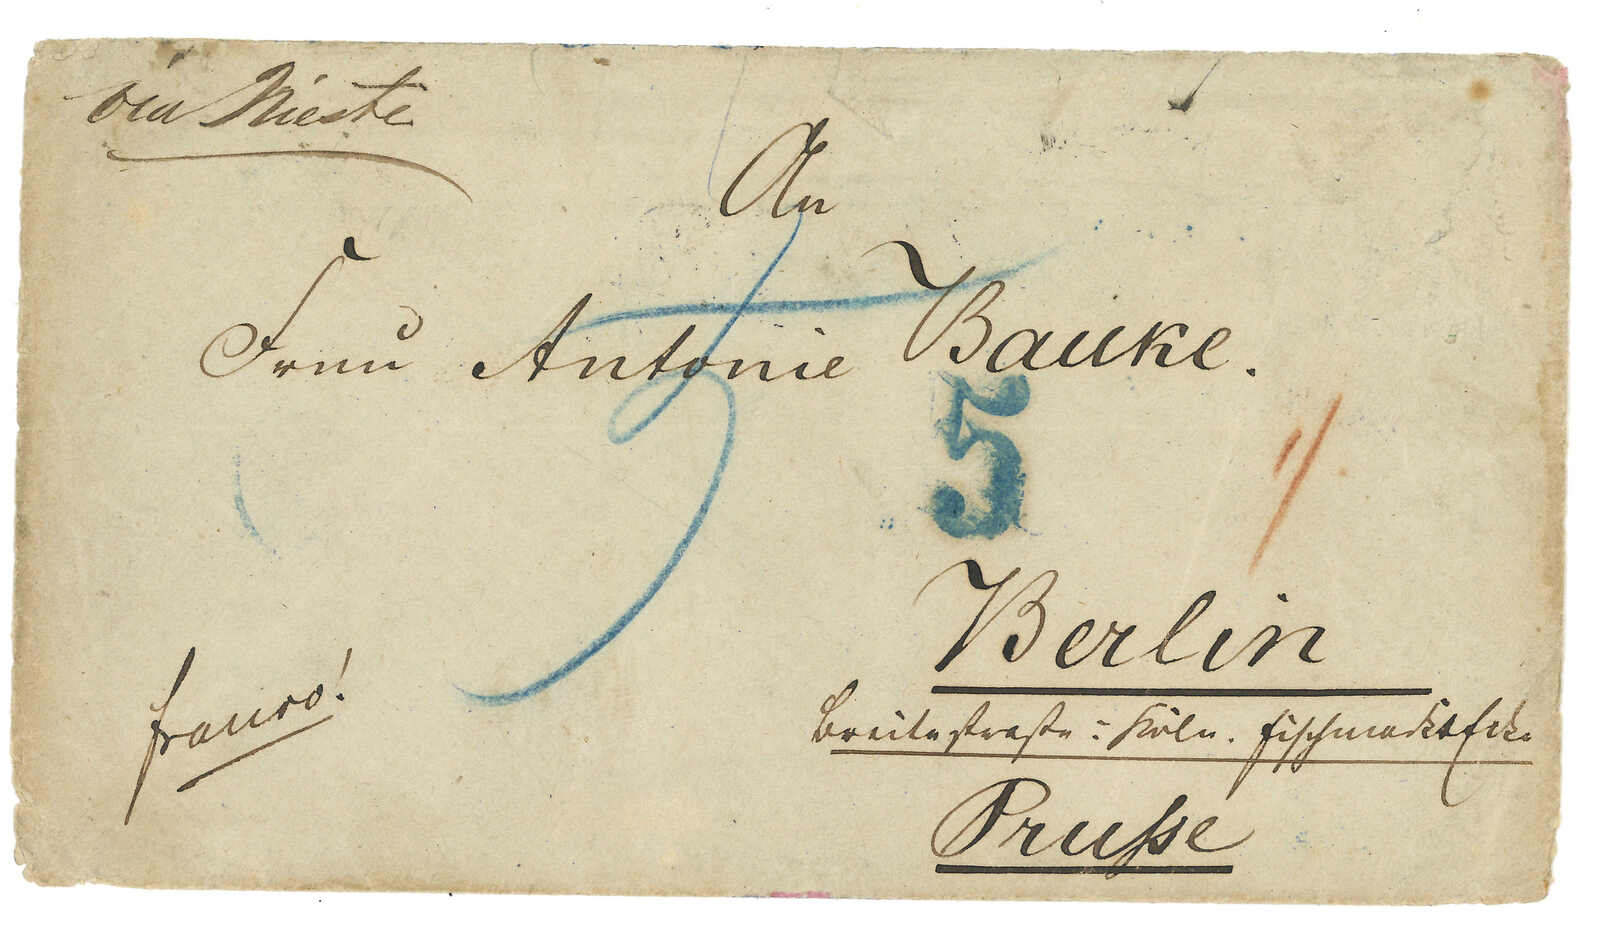 via Trieste
An
Frau Antonie Bauke.
5
5
Berlin
franco!
Breitestraße : Köln. Fischmarkt Ecke
Prusse